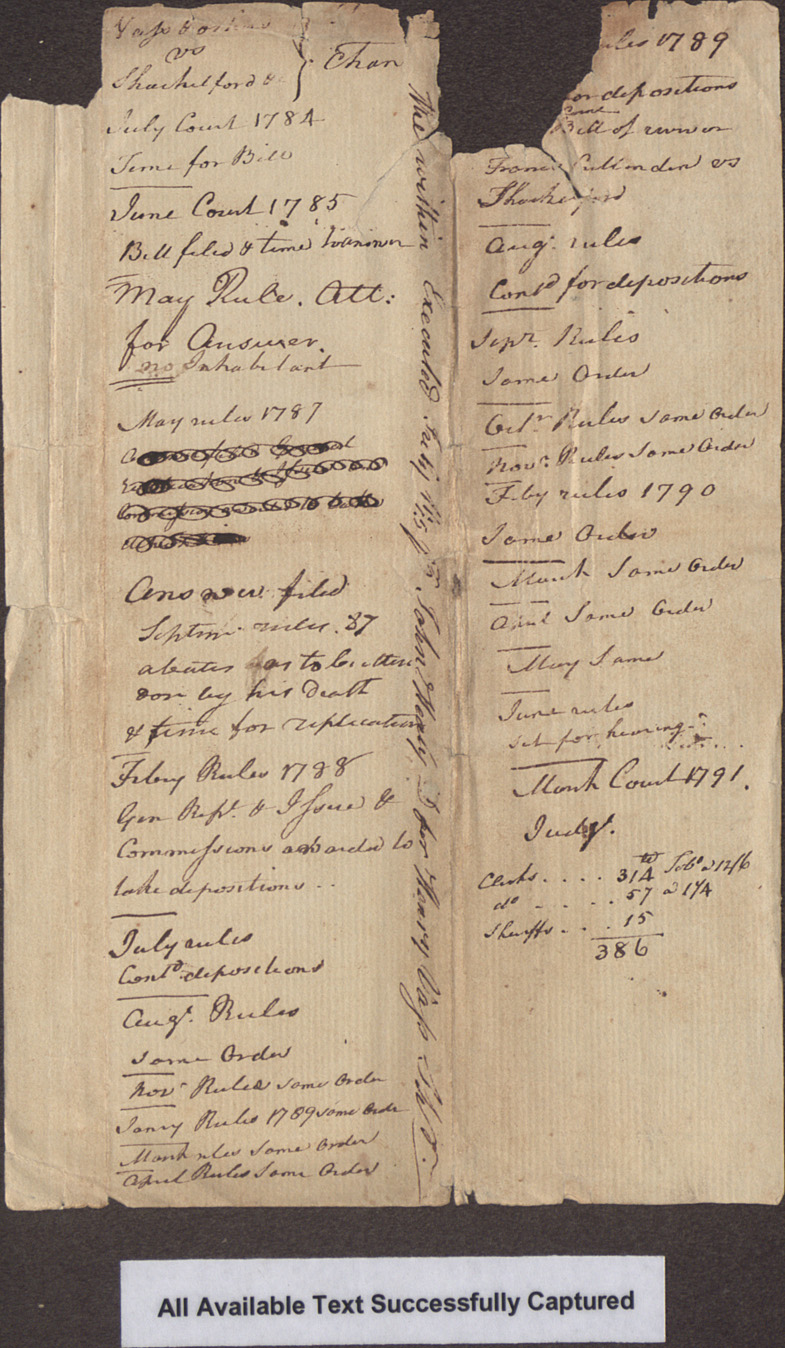 Vass &
vs
Shackelford &
} Chan
July Court 1784
Time for Bill
June Court 1785
Bill filed & time to answer
May Rule. Att:
for Answer.
no Inhabitant
May rules 1787
Answer filed
Septmr. rules. 87
abates as to
by his Death
& time for replication
Febry Rules 1788
Gen Repl. & Issue &
Commissions awarded to
take depositions ..
July rules
Contd. depositions
Augt. Rules
Same Order
Novr. Rules same Order
Janry Rules 1789 same Order
March rules Same Order
April Rules Same Order
The within Executed July 85 pr John Henry D for Henry Vass Sh f.
rules 1789
for depositions
Same
Bill of revivor
vs
Shackelford
Augt. rules
Contd for depositions
Sepr. Rules
Same Order
Octr. Rules Same Order
Novr. Rules Same Order
Feby rules 1790
Same Order
March Same Order
April Same Order
May Same
June rules
set for hearing
March Court 1791.
Judgt.
Clerks .... 314 Tobo a 12/6
do ..... 57 a 1¼
Sheriffs ... 15
386
All Available Text Successfully Captured